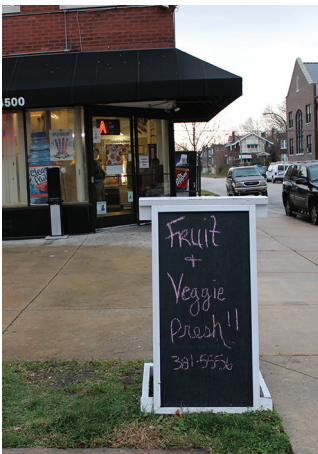 4500
A
Fruit
+
Veggie
Fresh!!
381-5556